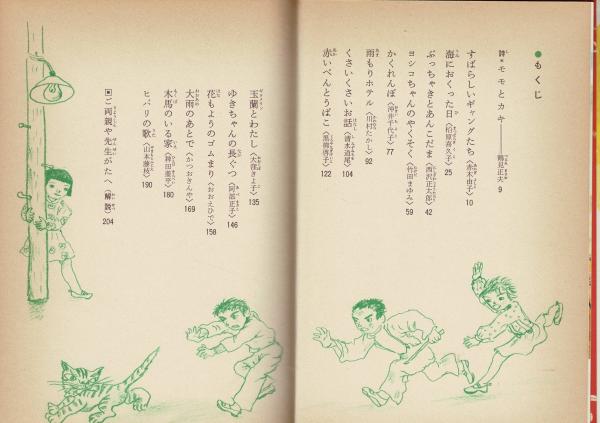 ●もくじ
詩*モモとカキ――鶴見正夫 9
すばらしいギャングたち〈赤木由子〉 10
海におくった日〈柏原喜久子〉 25
ぶっちゃきとあんこだま〈西沢正太郎〉 42
ヨシコちゃんのやくそく〈竹田まゆみ〉 59
かくれんぼ〈沖井千代子〉 77
雨もりホテル〈川村たかし〉 92
くさいくさいお話〈清水道尾〉 104
赤いべんとうばこ〈黒柳啓子〉 122
玉蘭とわたし〈大窪きよ子〉 135
ゆきちゃんの長ぐつ〈阿部正子〉 146
花もようのゴムまり〈おおえひで〉 158
大雨のあとで〈かつおきんや〉 169
木馬のいる家〈 180
ヒバリの歌〈山本藤枝〉 190
■ご両親や先生がたへ〈解説〉 204